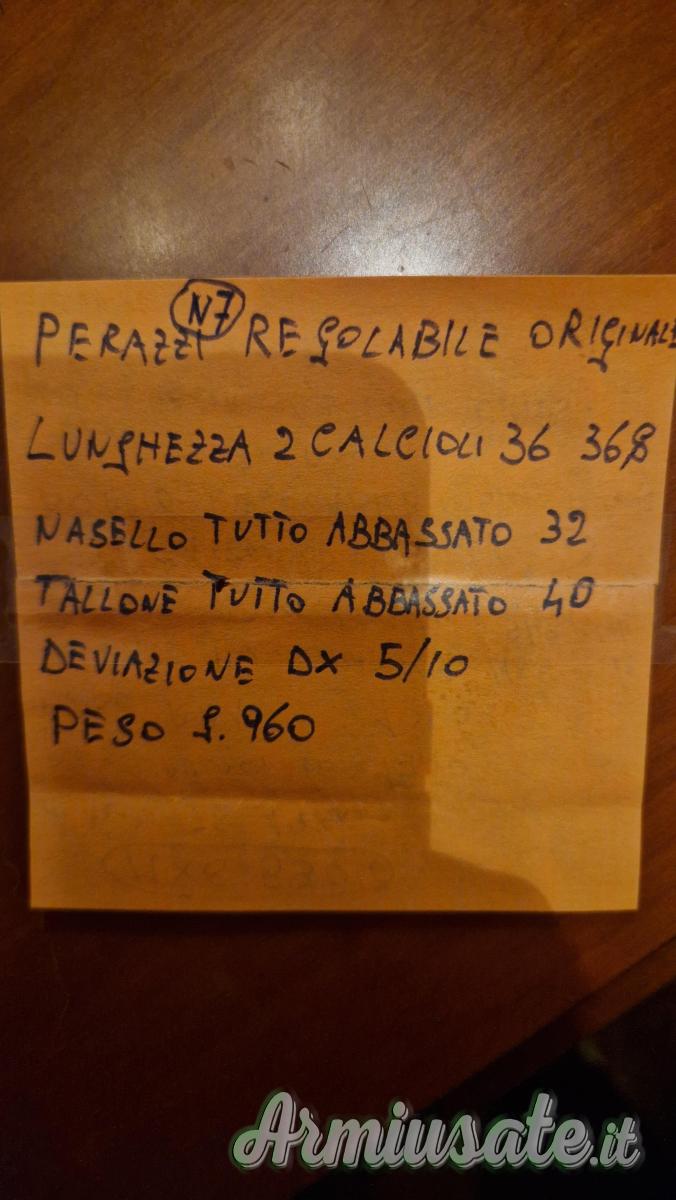 N7
PERAZZI REGOLABILE ORIGINALE
LUNGHEZZA 2 CALCIOLI 36 368
NASELLO TUTTO ABBASSATO 32
TALLONE TUTTO ABBASSATO 40
DEVIAZIONE DX 5/10
PESO g. 960
Armiusate.it